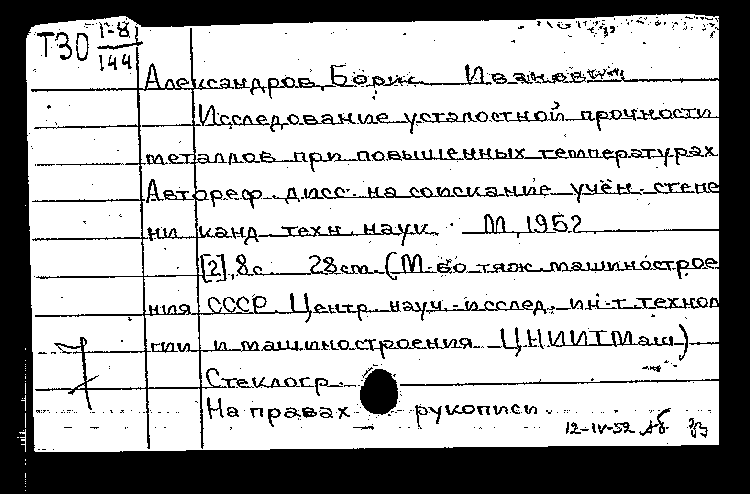 Т30 1-8
144
Александров, Борис Иванович
Исследование усталостной прочности
металлов при повышенных температурах
Автореф. дисс. на соискание учён. степе
ни канд. техн. наук. М, 1952
[2], 8с. 28см. (М-во тяж. машинострое
ния СССР. Центр. науч.-исслед. ин-т технол
гии и машиностроения ЦНИИТМаш)
Стеклогр.
На правах рукописи.
12-IV-52